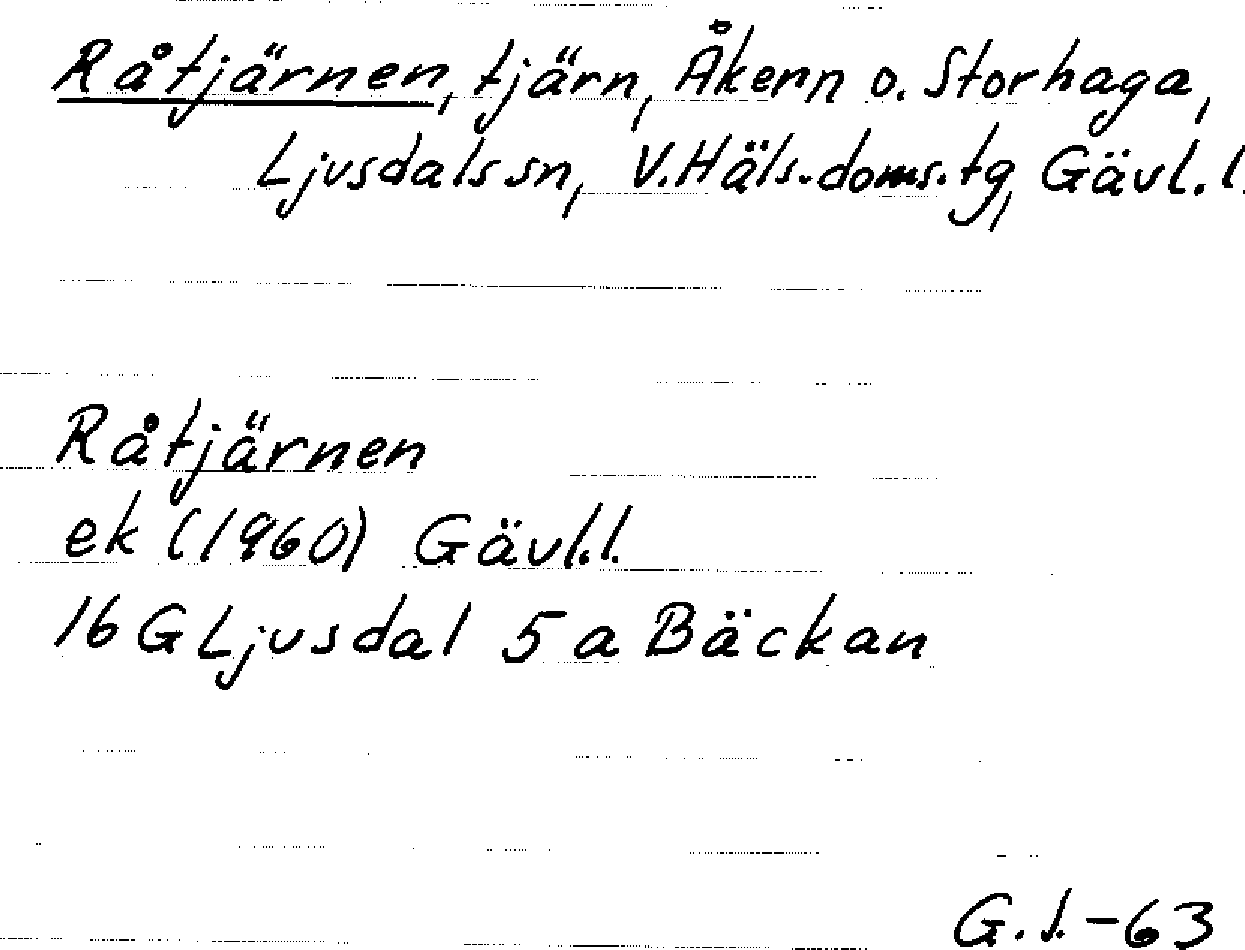 Råtjärnen, tjärn, Åkern o. Storhaga,
Ljusdals sn, V.Häls.doms.tg, Gävl.l.
Råtjärnen
ek (1960) Gävl.l.
16 G Ljusdal 5 a Bäckan
G.J.-63